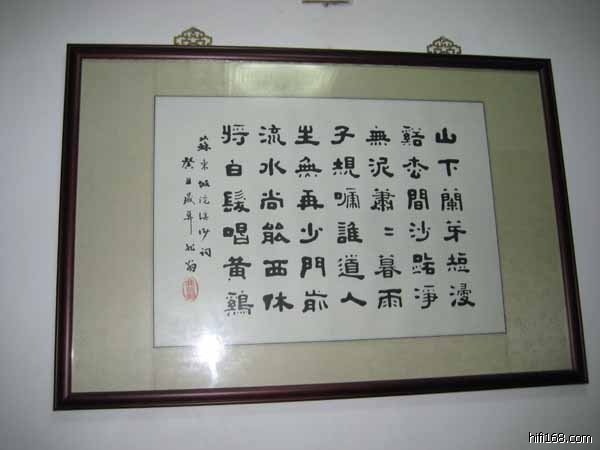 山下蘭芽短浸
谿松間沙路淨
無泥蕭〻暮雨
子規嗁誰道人
生無再少門前
流水尚能西休
將白髮唱黃鷄
蘇東坡浣溪沙詞
hifi168.com